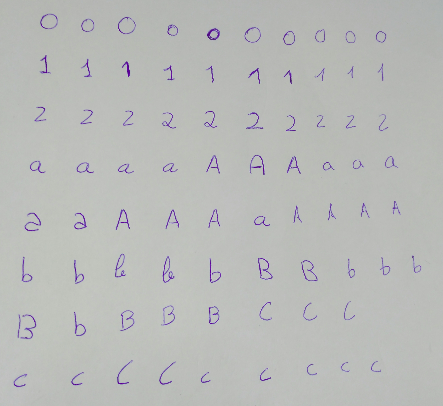 0 0 0 0 0 0 0 0 0 0
1 1 1 1 1 1 1 1 1 1
2 2 2 2 2 2 2 2 2 2
a a a a A A A a a a
a a A A A a A A A A
b b b b b B B b b b
B b B B B C C C
c c C C c c c c c